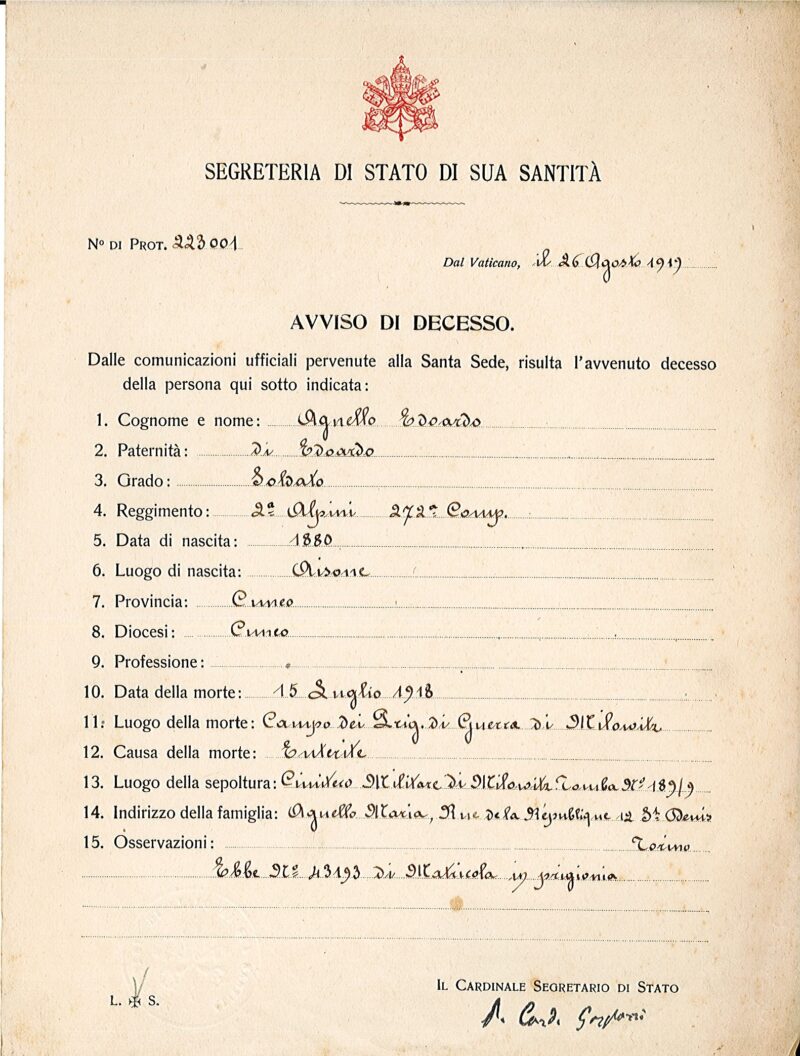 SEGRETERIA DI STATO DI SUA SANTITÀ
Nº DI PROT. 223001
Dal Vaticano, il 26 Agosto 1919
AVVISO DI DECESSO.
Dalle comunicazioni ufficiali pervenute alla Santa Sede, risulta l'avvenuto decesso
della persona qui sotto indicata:
1. Cognome e nome: Agnello Edoardo
2. Paternità: di Edoardo
3. Grado: Soldato
4. Reggimento: 2º Alpini 272ª Comp.
5. Data di nascita: 1880
6. Luogo di nascita: Aisone
7. Provincia: Cuneo
8. Diocesi: Cuneo
9. Professione:
10. Data della morte: 15 Luglio 1918
11. Luogo della morte: Campo dei Prig. di Guerra di Milowitz
12. Causa della morte: Enterite
13. Luogo della sepoltura: Cimitero Militare di Milowitz. Tomba Nº 189/9
14. Indirizzo della famiglia: Agnello Maria, Rue de la République 12 St Denis
15. Osservazioni: Torino
Ebbe Nº 43193 di Matricola in prigionia
L. ✠ S.
IL CARDINALE SEGRETARIO DI STATO
P. Card. Gasparri